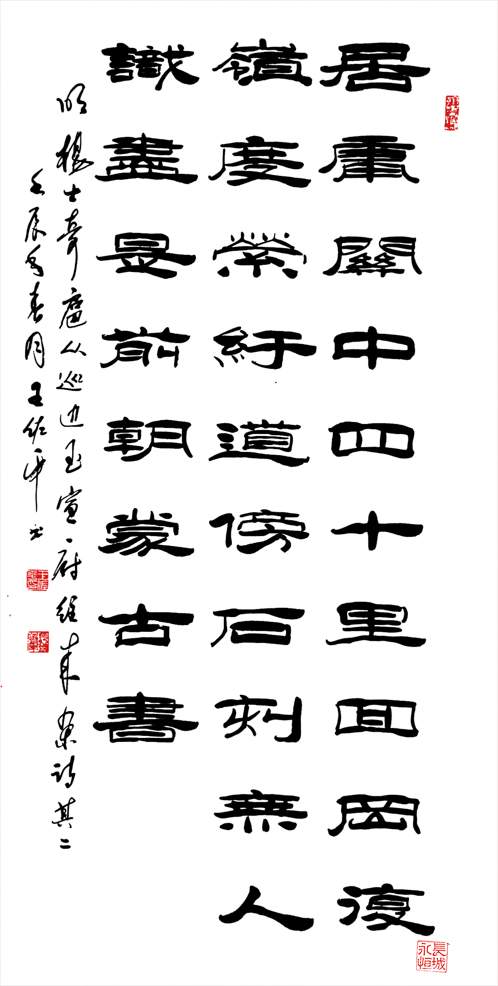 居庸關中四十里回岡復
嶺度縈紆道傍石刻無人
識盡是前朝蒙古書
明楊士奇扈从巡边至宣府往来杂诗其二
壬辰年春月王佐平书
長城永恒